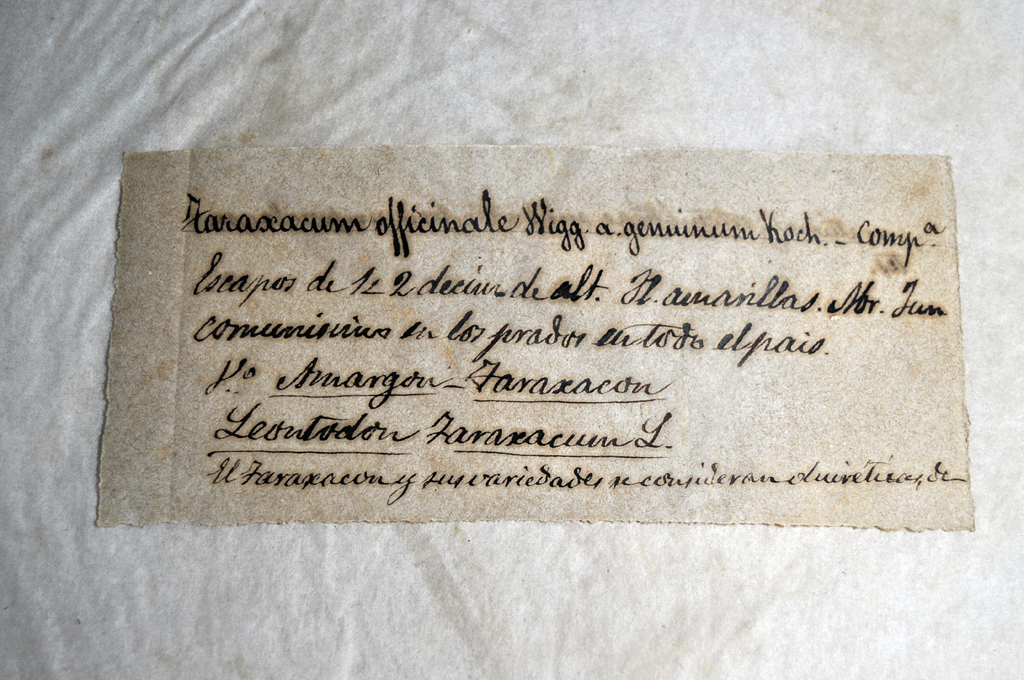 Taraxacum officinale Wigg. a. genuinum Koch. - Compª
Escapos de 1 á 2 decim de alt. Fl. amarillas. Abr. Jun
comunisimo en los prados en todo el pais.
V.º Amargon - Taraxacon
Leontodon Taraxacum L.
El Taraxacon y sus variedades se consideran diureticas, de-